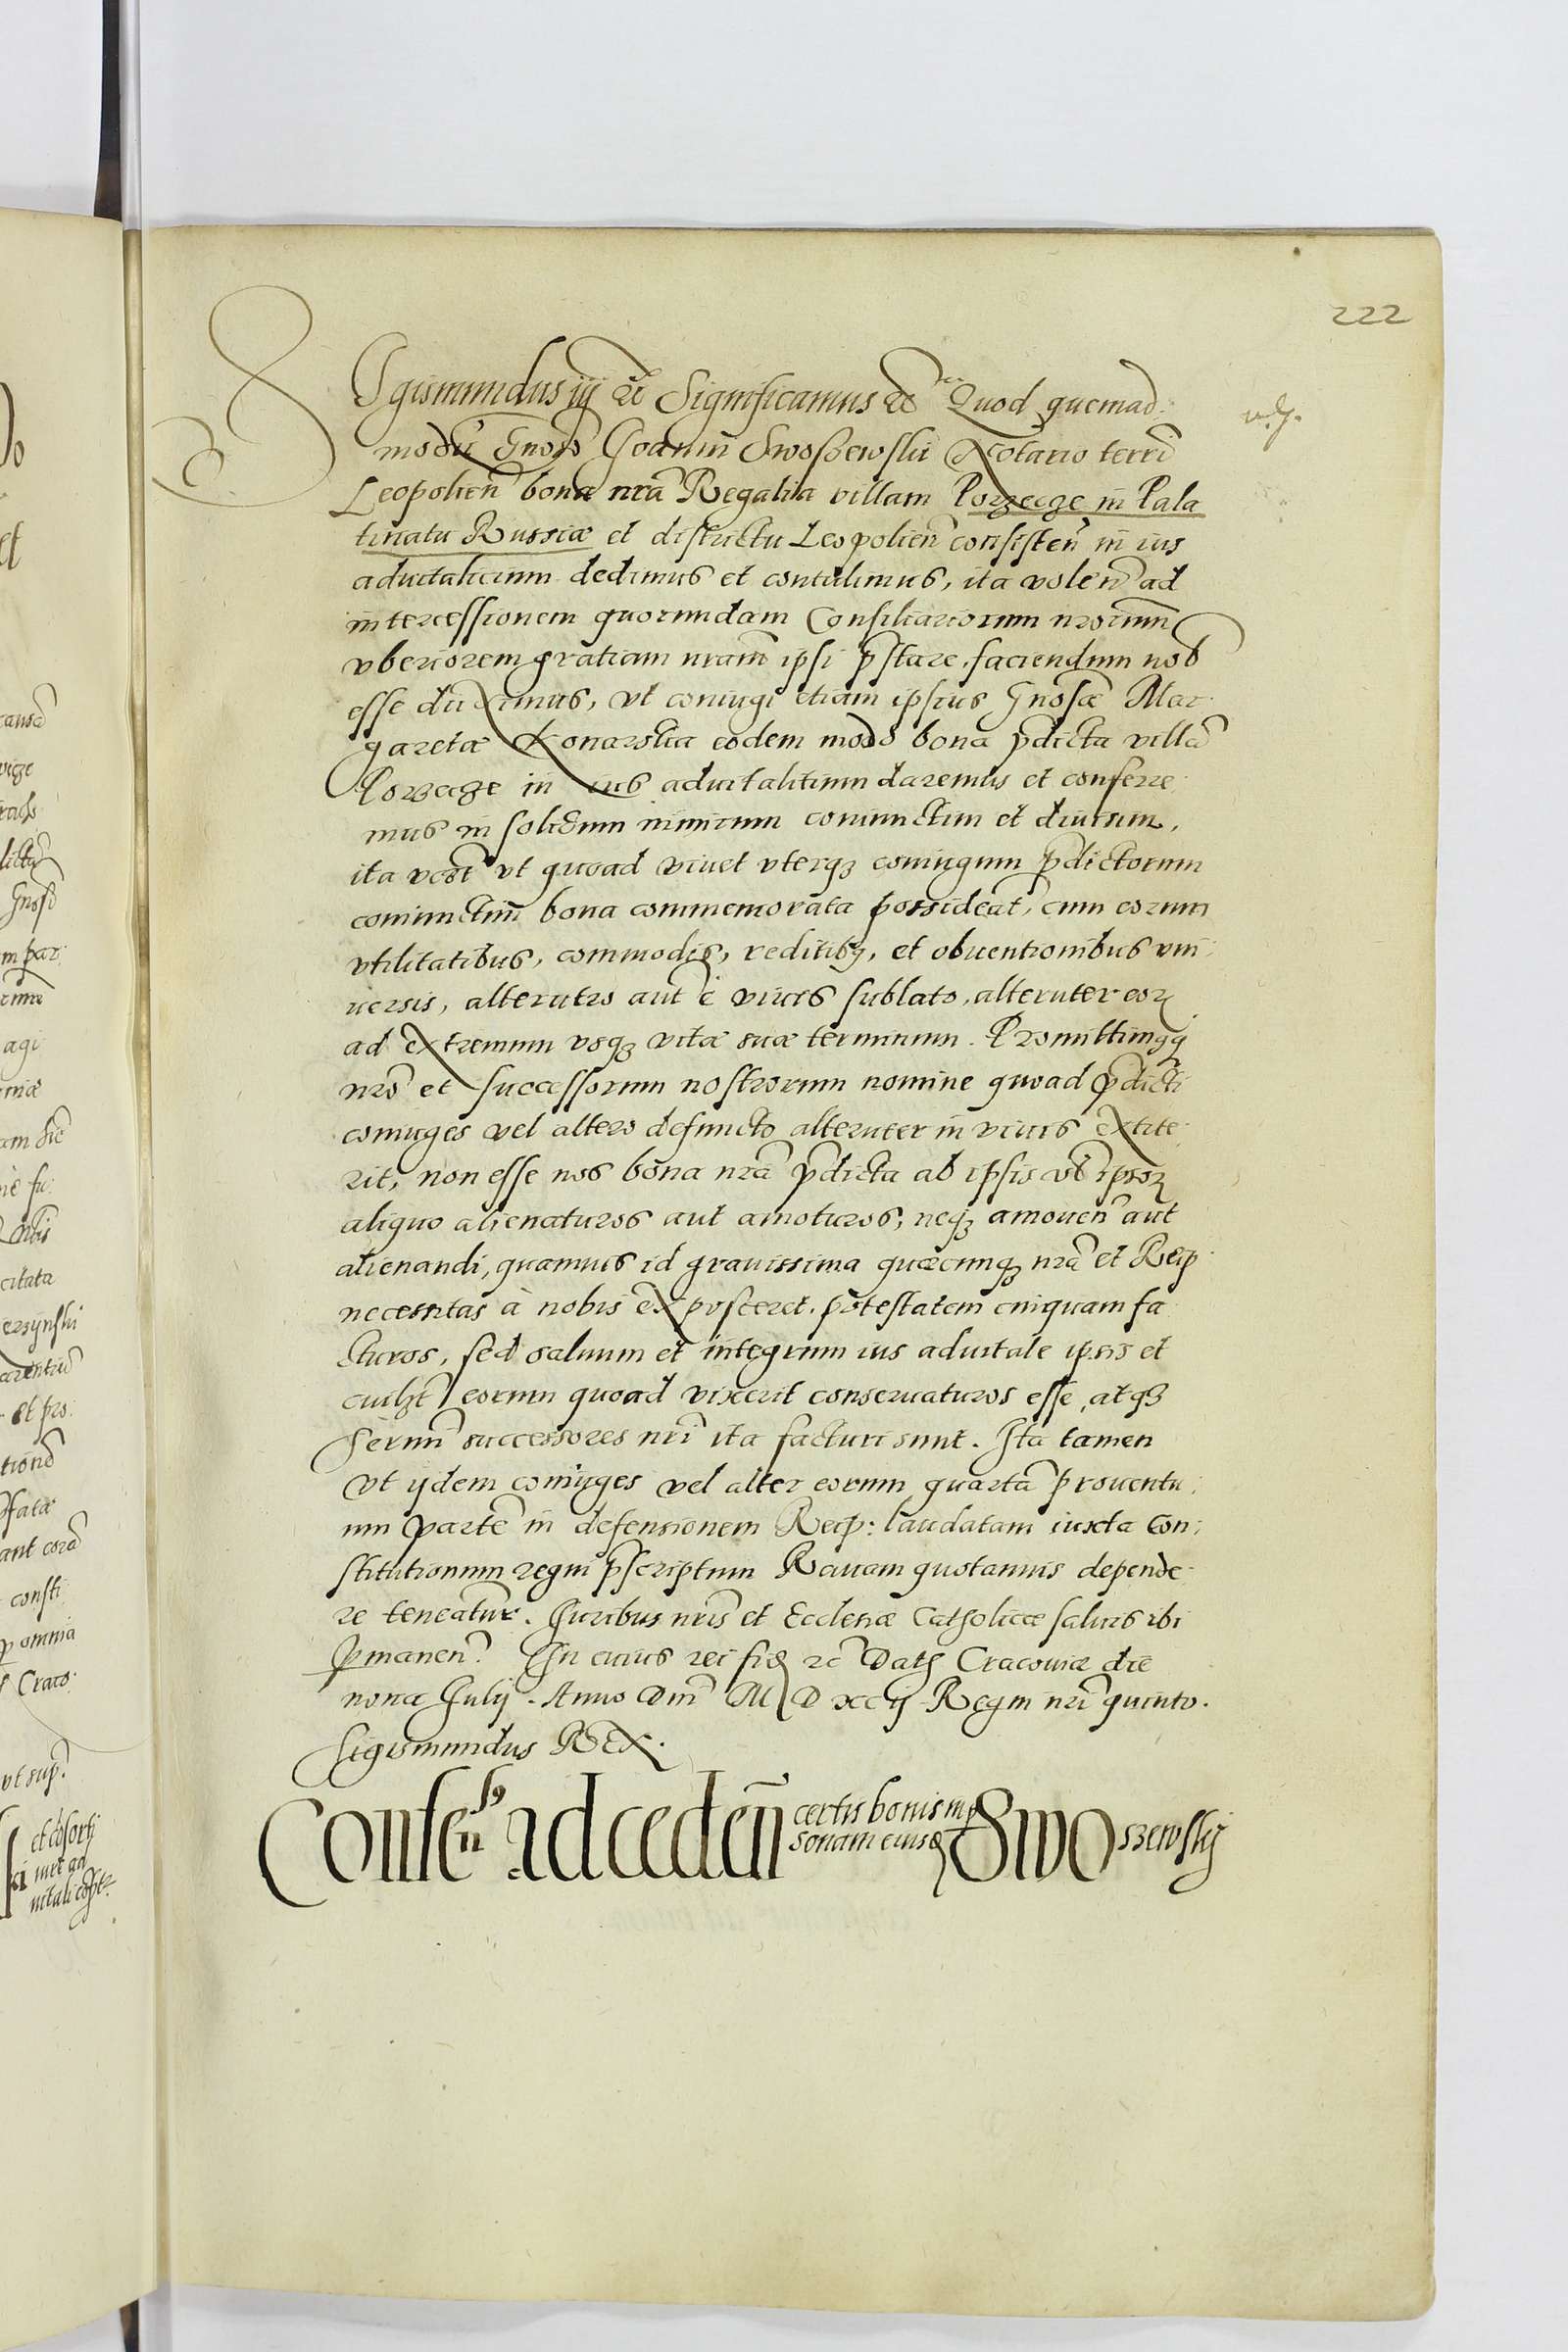 222
SIgismundus iij etc Significamus etc Quod quemad:
modũ Gnoso Joanni Swoszewski Notario terri
Leopolien bona nrã Regalia villam Porzecze in Pala
tinatu Russiæ et districtu Leopolien consisten in ius
aduitalicium dedimus et contulimus, ita volen ad
intercessionem quorundam Consiliariorum nrorum
vberiorem gratiam nram ipsi pstare, faciendum nob
esse duximus, vt coniugi etiam ipsius Gnosæ Mar:
garetæ Konarska eodem modo bona pdicta villã
Porzecze in ius aduitalitium daremus et conferre:
mus in solidum nimirum coniunctim et diuisim,
ita vt quoad viuet vterqз coniugum pdictorum
coniunctim bona commemorata possideat, cum eorum
vtilitatibus, commodis, reditibз, et obuentionibus vni:
uersis, alterutro aut è viuis sublato, alteruter eorꝝ
ad extremum vsqз vitæ suæ terminum. Promittimqз
nro et successorum nostrorum nomine quoad pdicti
coniuges vel altero defuncto alteruter in viuis extite:
rit, non esse nos bona nrã pdicta ab ipsis vł ipsorꝝ
aliquo alienaturos aut amoturos, neqз amouen aut
alienandi, quamuis id grauissima quæcunqз nrã et Reip:
necessitas à nobis exposceret, potestatem cuiquam fa
cturos, sed saluum et integrum ius aduitale ipsis et
cuilзt eorum quoad vixerit conseruaturos esse, atqз
Sermi successores nri ita facturi sunt. Ita tamen
vt ijdem coniuges vel alter eorum quartã prouentu:
um partẽ in defensionem Reip: laudatam iuxta Con:
stitutionum regni pscriptum Rauam quotannis depende:
re teneatur. Iuribus nris et Ecclesiæ Catholicæ saluis ibi
pmanen. In cuius rei fidꝫ etc Datꝫ Cracouiæ die
nona Julij. Anno Dni M D xcij Regni nri quinto.
Sigismundus REX.
Consenss9 ad cedeñ certis bonis in p
sonam eiusd Swoszewskij